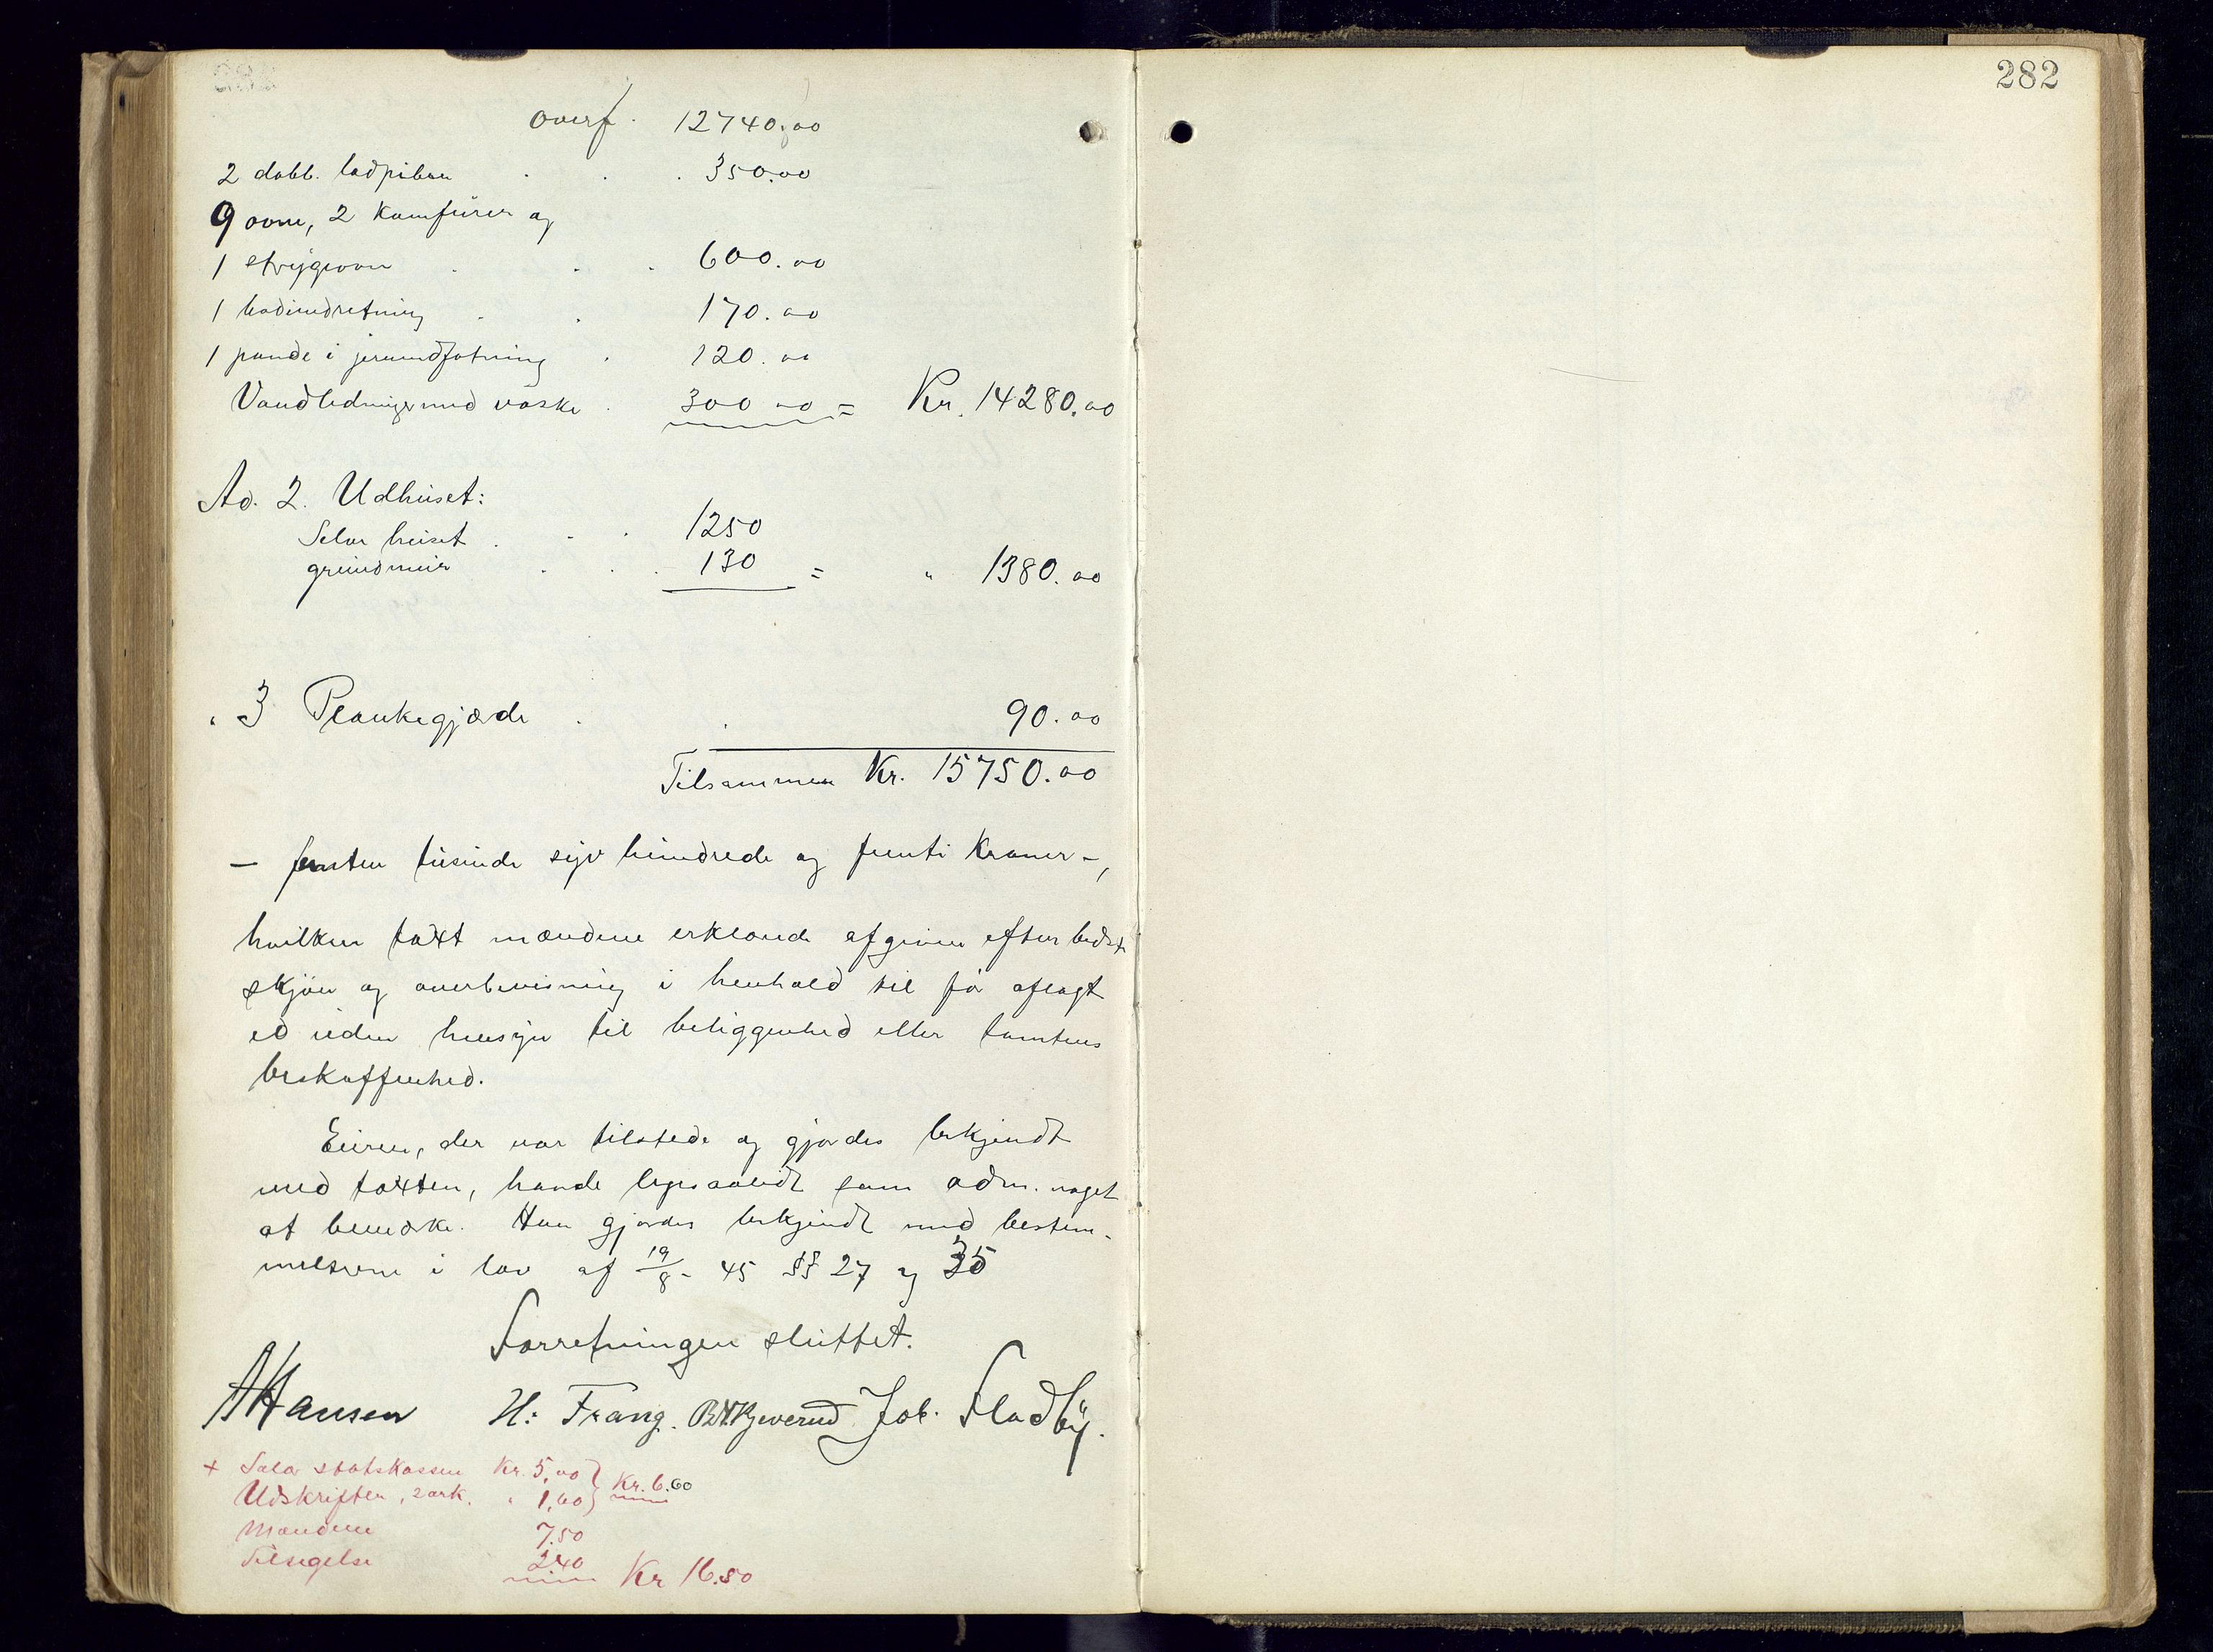 282
overf. 12740,00
2 dobb. ladpiber . . . 350.00
9 ovne, 2 Komfürer og
1 strygeovn . . . 600.00
1 badeindretning . . 170.00
1 pande i jernindfatning . 120.00
Vandledninger med vaske . 300 00 = Kr. 14280.00
Ad. 2. Udhuset:
Selve huset . . . 1250
grundmur . . . 130 = " 1380.00
" 3 Plankegjærde . . 90.00
Tilsammen Kr. 15750.00
— femten tusinde syv hundrede og femti Kroner —,
hvilken taxt mændene erklærede afgiven efter bedste
skjøn og overbevisning i henhold til før aflagt
ed uden hensyn til beliggenhed eller tomtens
beskaffenhed.
Eieren, der var tilstede og gjordes bekjendt
med taxten, havde ligesaalidt som adm. noget
at bemærke. Han gjordes bekjendt med bestem-
melserne i lov af 19/8 - 45 §§ 27 og 35
Forretningen sluttet.
AHansen H. Frang. Joh. Fladby.
+ Salær statskassen Kr. 5,00
Udskriften, 2 ark. " 1,60 } Kr. 6.60
Mændene 7.50
Tilsigelse 2.40 Kr 16.50